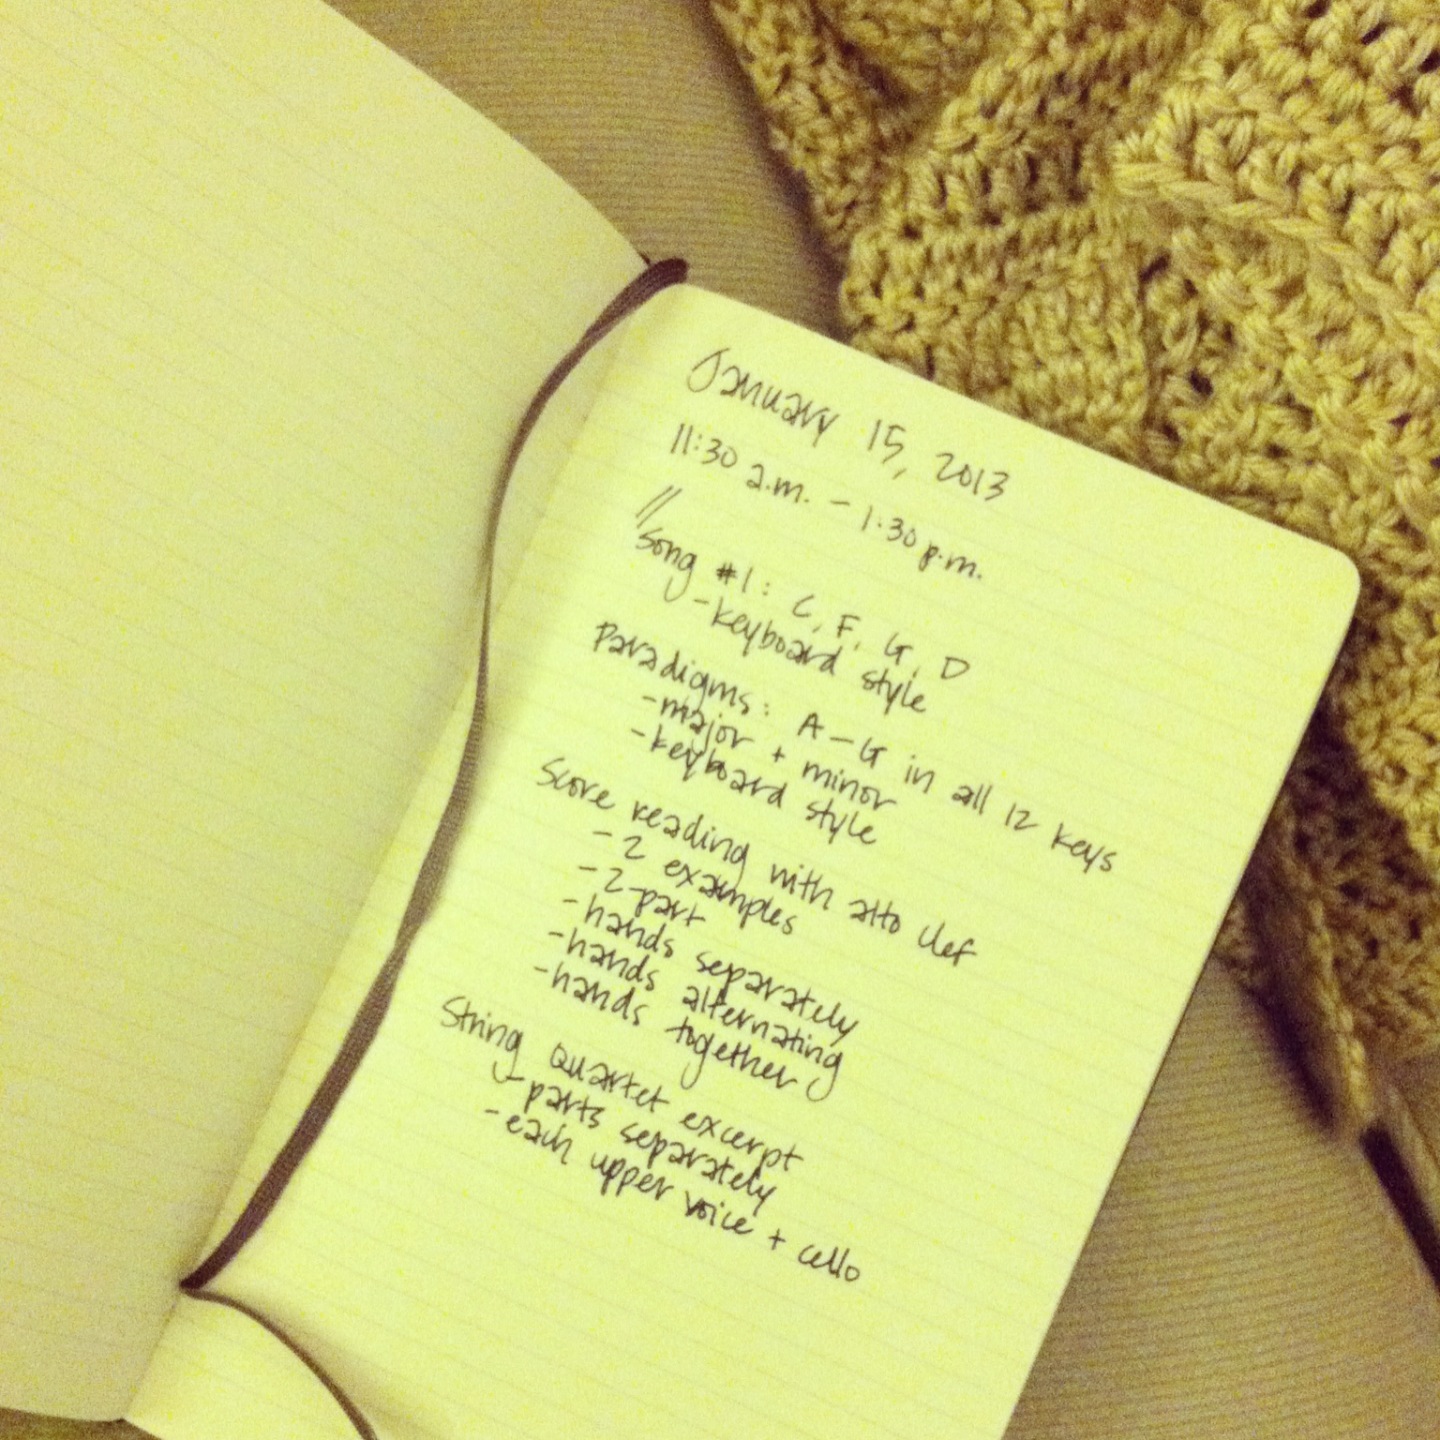 January 15, 2013
11:30 a.m. – 1:30 p.m.
//
Song #1: C, F, G, D
- keyboard style
Paradigms: A – G in all 12 keys
- major + minor
- keyboard style
Score reading with alto clef
- 2 examples
- 2-part
- hands separately
- hands alternating
- hands together
String quartet excerpt
- parts separately
- each upper voice + cello